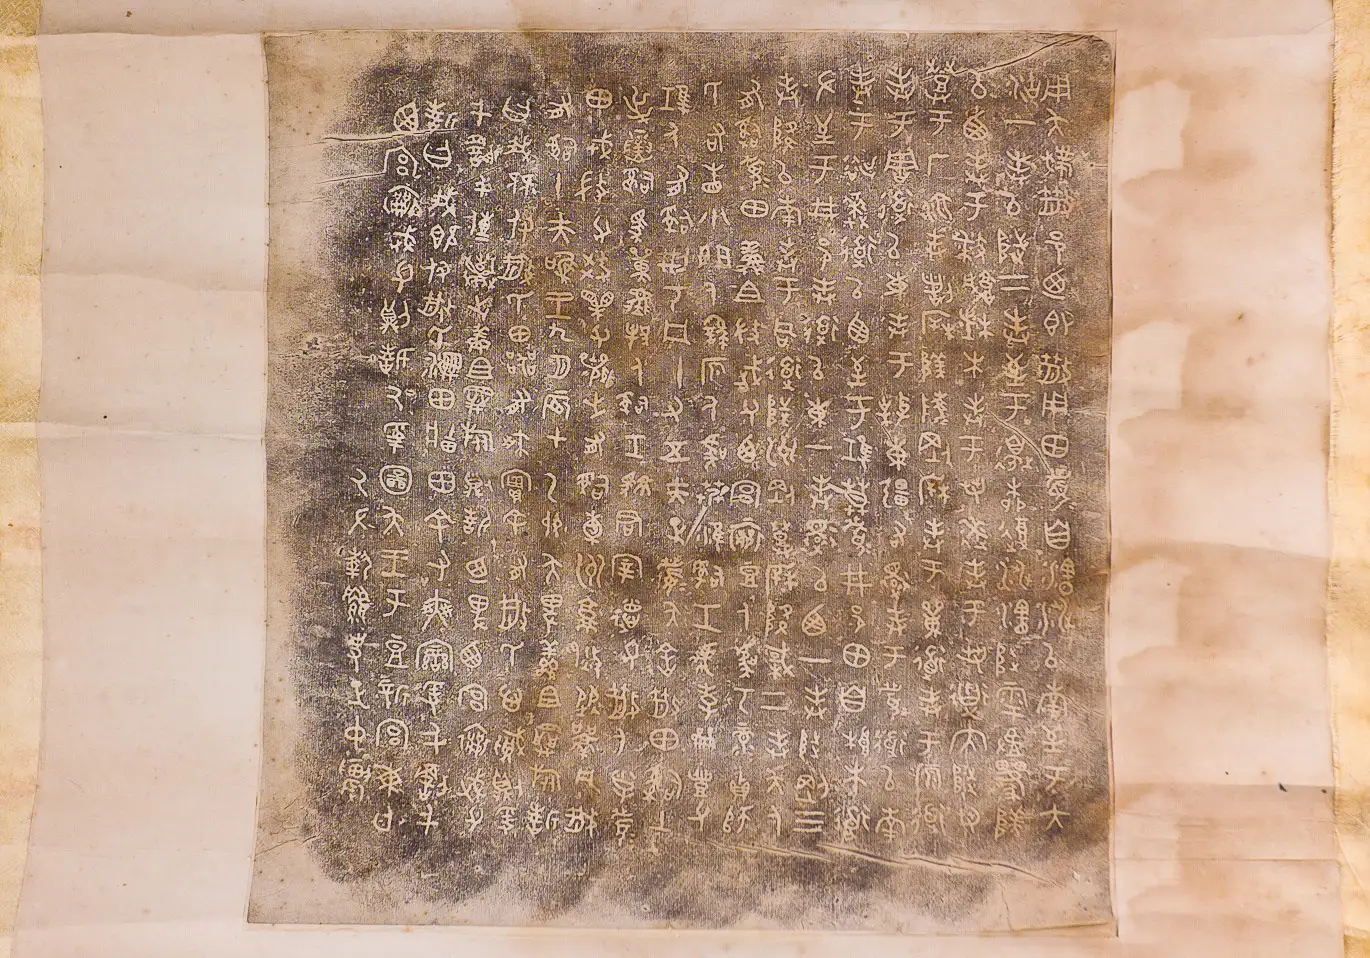 用夨𢦏散邑乃即散用田眉自瀗涉以南至于大
沽一封以陟二封至于邊柳復涉瀗陟雩
以西封于播城楮木封于芻逨封于芻道內陟芻
登于厂湶封諸陵剛封于單道封于原道
封于周道以東封于東疆右還封于眉道以南
封于逨道以西至于莫眉井邑田自根木道
左至于井邑封道以東一封還以西一封陟剛三
封降以南封于同道陟州剛登降棫二封夨人
有司眉田鮮且微武父西宮襄豆人虞丂彔貞師
氏右眚小門人繇原人虞艿淮司工虎孝龠豐父
人有司刑丂凡十又五夫正眉夨舍散田司土
屰寅司馬單邦人司工君宰德父散人小子眉
田戎微父效父襄之有司橐州就焂從凡散
有司十夫唯王九月辰才乙卯夨卑鮮且旅誓
曰我既付散氏田器有爽實余有散氏心賊則爰
千罰千傳棄之鮮且旅則誓乃卑西宮襄武父
誓曰我既付散氏濕田牆田余又爽變爰千罰千
西宮襄武父則誓厥受圖夨王于豆新宮東廷
厥左執史正中農